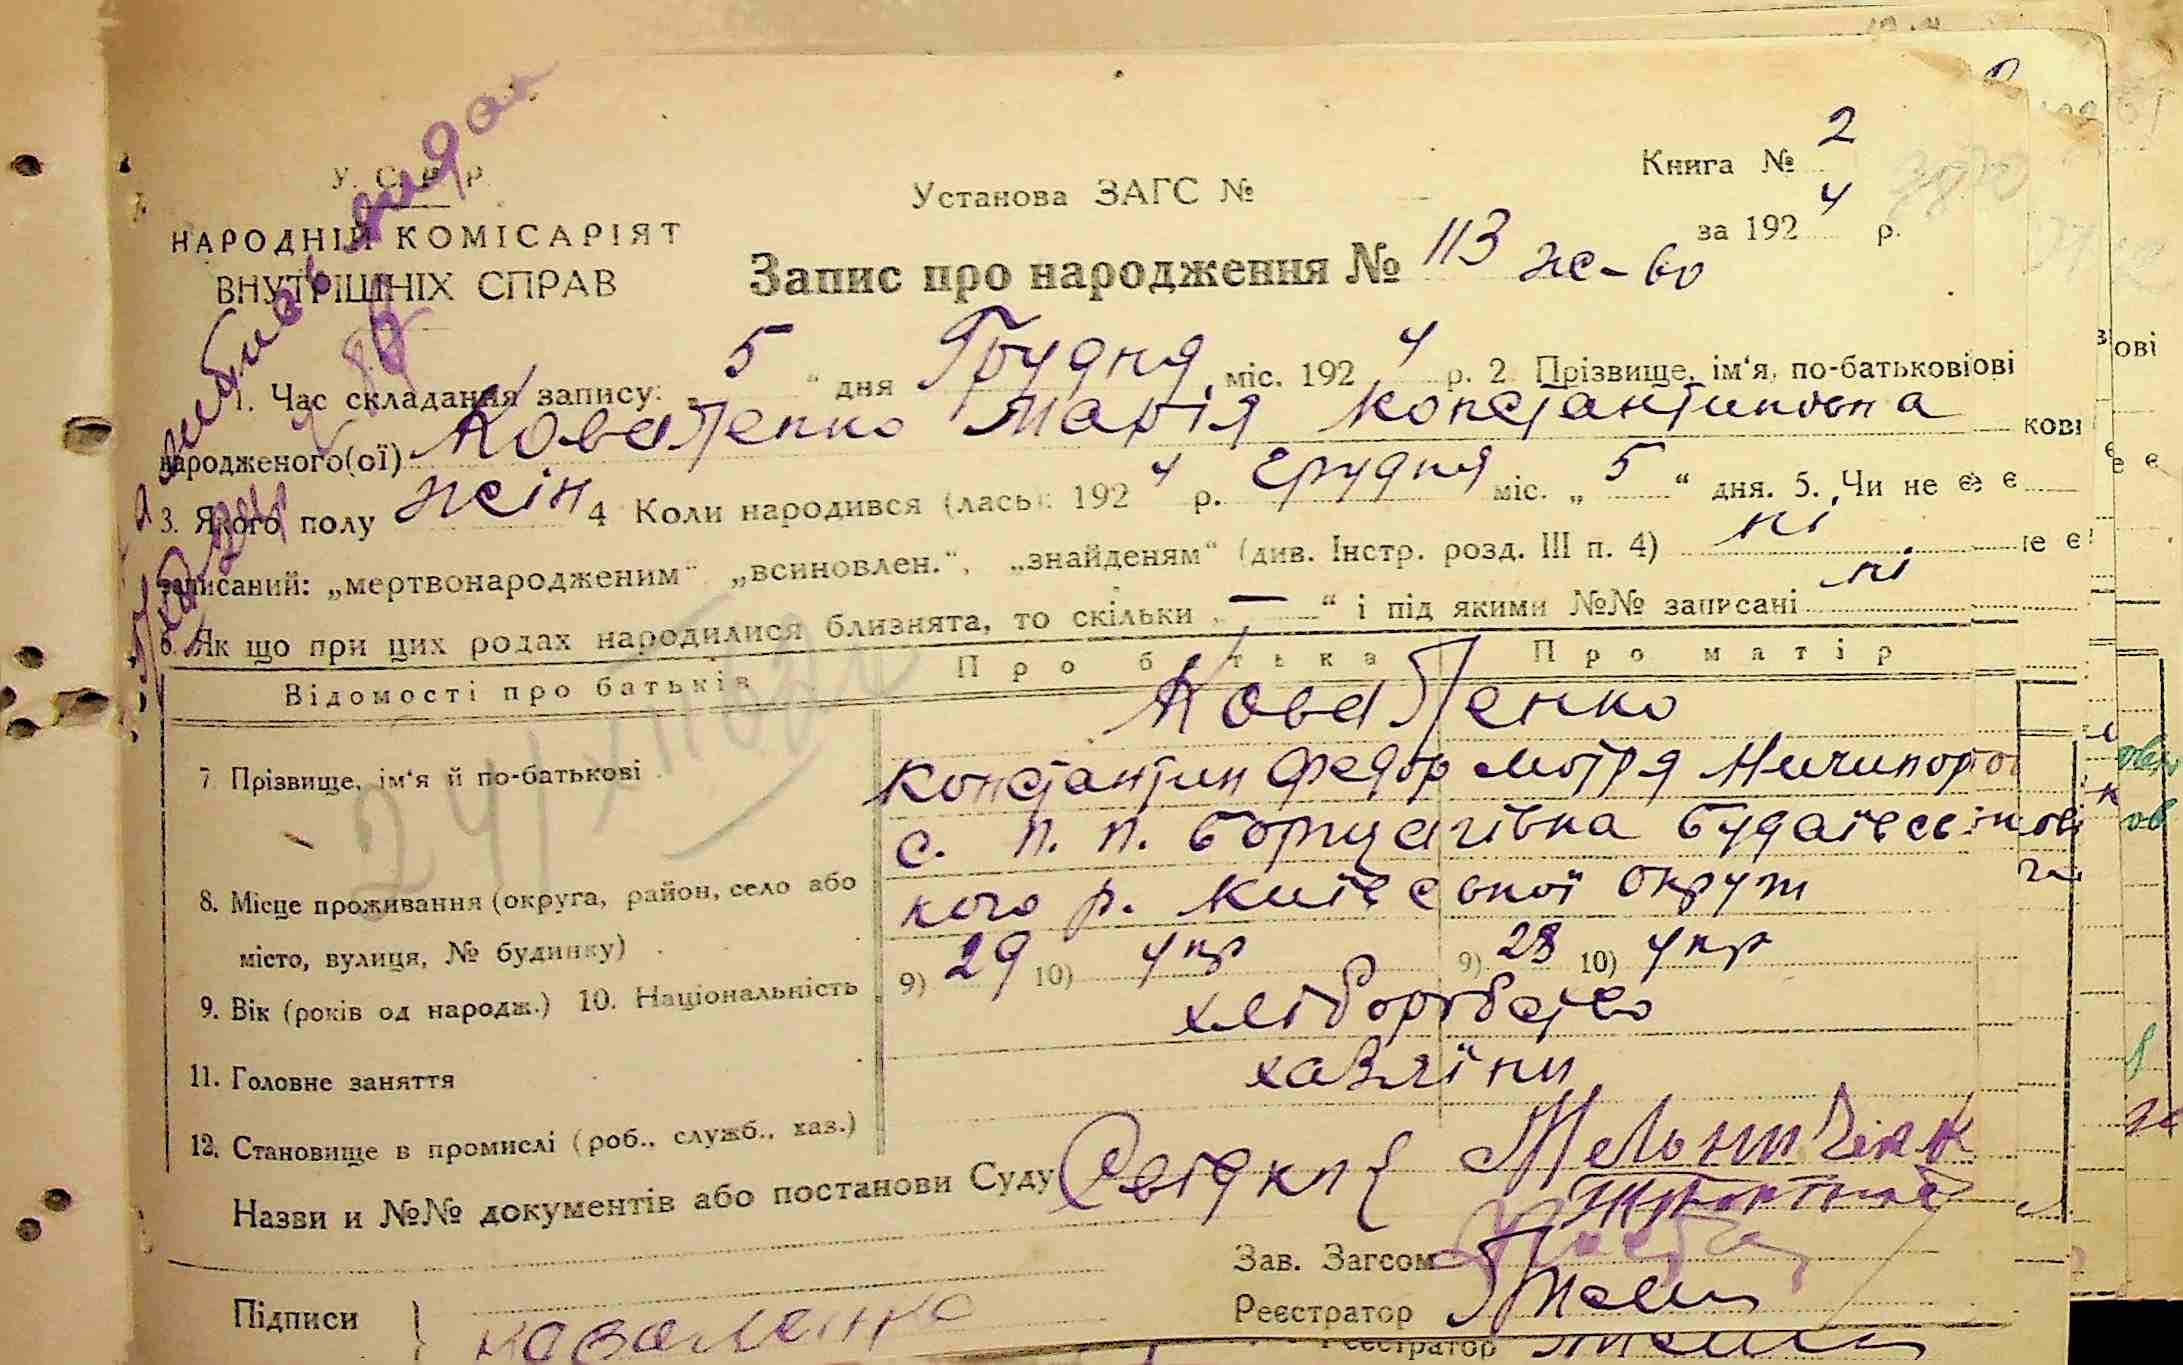 У. С. Р. Р.
НАРОДНІЙ КОМІСАРІЯТ
ВНУТРІШНІХ СПРАВ
Установа ЗАГС №
Книга № 2
за 1924 р.
Запис про народження № 113 же-во
1. Час складання запису: „5“ дня Грудня міс. 1924 р. 2. Прізвище, ім‘я, по-батькові
народженого(ої) Коваленко Марія Константиновна
3. Якого полу жін 4 Коли народився (лась): 1924 р. грудня міс. „5“ дня. 5. Чи не є
записаний: „мертвонародженим“ „всиновлен.“, „знайденям“ (див. Інстр. розд. III п. 4) ні
6. Як що при цих родах народилися близнята, то скільки „—“ і під якими №№ записані ні
Відомості про батьків
Про батька
Про матір
Коваленко
7. Прізвище, ім‘я й по-батькові
Константин Федор Мотря Ничипоро
с. п. п. Борщагівка Будаївсь
8. Місце проживання (округа, район, село або
кого р. Київської округи
місто, вулиця, № будинку)
9. Вік (років од народж.) 10. Національність
9) 29 10) укр 9) 28 10) укр
11. Головне заняття
хліборобство
12. Становище в промислі (роб., служб., хаз.)
хазяїни
Назви и №№ документів або постанови Суду
Свідки
Зав. Загсом
Підписи
Коваленко
Реєстратор
Реєстратор